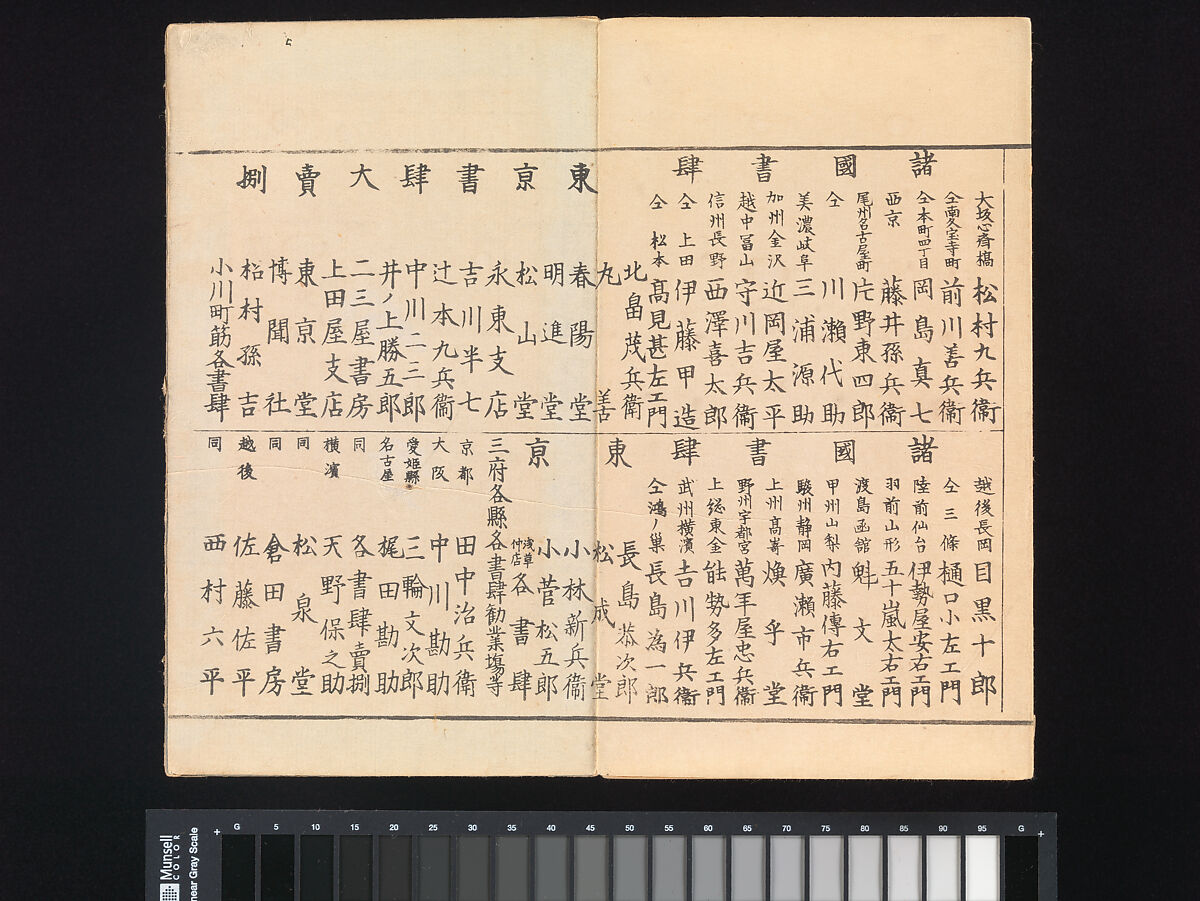 諸國書肆
大坂心斎橋 松村九兵衞
仝南久宝寺町 前川善兵衞
仝本町四丁目 岡島真七
西京 藤井孫兵衞
尾州名古屋町 片野東四郎
仝 川瀬代助
美濃岐阜 三浦源助
加州金沢 近岡屋太平
越中冨山 守川吉兵衞
信州長野 西澤喜太郎
仝上田 伊藤甲造
仝松本 髙見甚左エ門
東亰書肆大賣捌
北畠茂兵衞
丸善
春陽堂
明進堂
松山堂
永東支店
吉川半七
辻本九兵衞
中川二三郎
井ノ上勝五郎
二三屋書房
上田屋支店
東京堂
博聞社
松村孫吉
小川町筋各書肆
諸國書肆
越後長岡 目黒十郎
仝三條 樋口小左エ門
陸前仙台 伊勢屋安右エ門
羽前山形 五十嵐太右エ門
渡島函舘 魁文堂
甲州山梨 内藤傳右エ門
駿州静岡 廣瀬市兵衞
上州髙嵜 煥乎堂
野州宇都宮 萬年屋忠兵衞
上総東金 能勢多左エ門
武州横濱 吉川伊兵衞
仝鴻ノ巣 長島為一郎
東亰
長島恭次郎
松成堂
小林新兵衞
小菅松五郎
浅草仲店 各書肆
三府各縣各書肆勧業塲等
京都 田中治兵衞
大阪 中川勘助
愛姫縣 三輪文次郎
名古屋 梶田勘助
同 各書肆賣捌
横濱 天野保之助
同 松泉堂
同 倉田書房
越後 佐藤佐平
同 西村六平
+ G 5 10 15 20 25 30 35 40 45 50 55 60 65 70 75 80 85 90 95 G +
Munsell COLOR
near Gray Scale